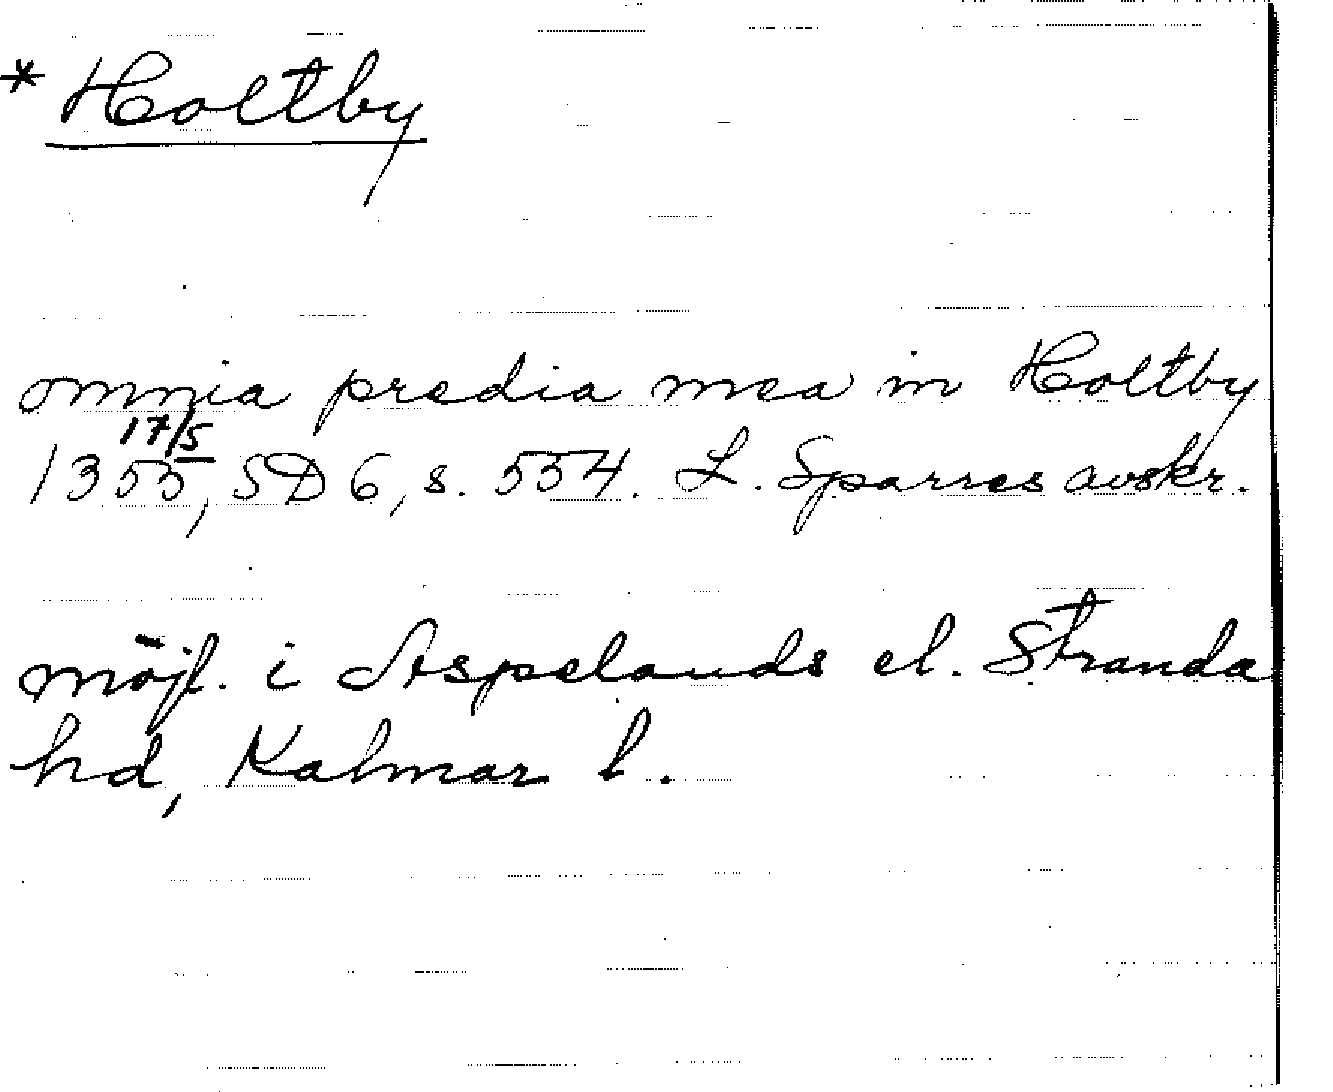 * Holtby
omnia predia mea in Holtby
17/5
1355, SD 6, s. 554. L. Sparres avskr.
möjl. i Aspelands el. Stranda
hd, Kalmar l.